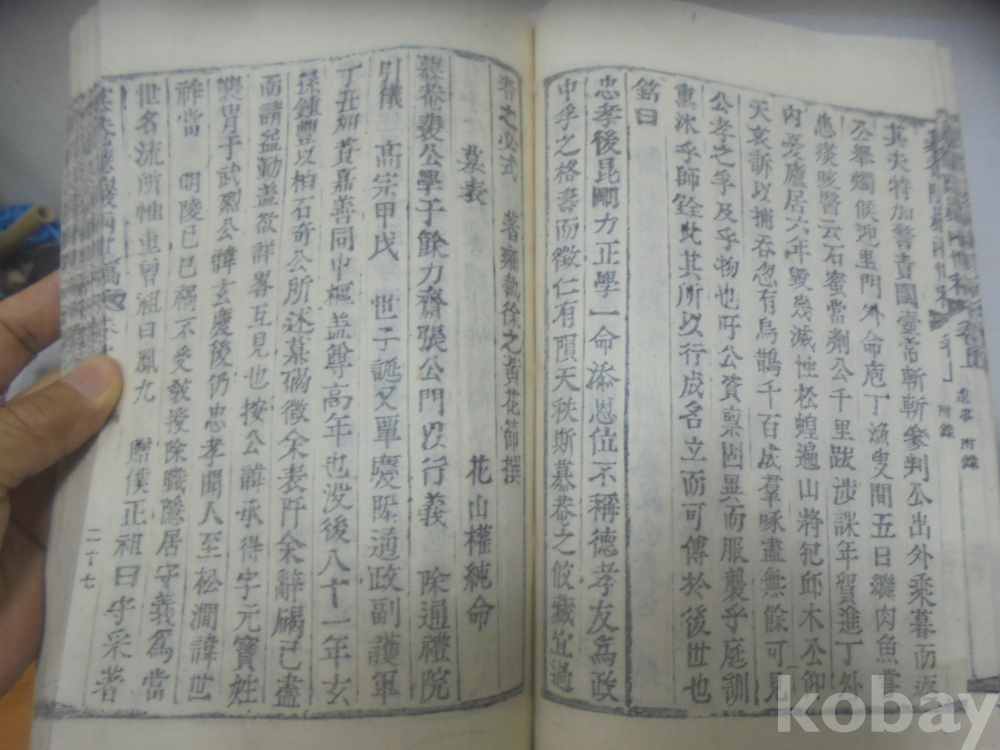 其夫特加警責閨壼斋斬斬參判公出外乘暮而返
公奉燭候迎里門外命庖丁漁叟間五日繼肉魚當
患痰咳醫云石蜜當劑公千里跋涉課年貿進丁外
內憂廬居六年毀幾滅性松蝗遍山將犯邱木公仰
天哀訴以捕吞忽有烏鵲千百成羣啄盡無餘可見
公孝之孚及乎物也吁公資禀固異而服襲乎庭訓
熏沐乎師銓此其所以行成名立而可傳於後世也
銘曰
忠孝後昆剛力正學一命添恩位不稱德孝友爲政
中孚之格壽而徵仁有隕天秩斯慕菴之攸藏宜過
者之必式 著雍執徐之黃花節撰
墓表 花山權純命
慕菴裵公學于餘力齋張公門以行義 除通禮院
引儀 高宗甲戊 世子誕又覃慶陞通政副護軍
丁丑加資嘉善同中樞盖尊高年也沒後八十一年玄
孫鎮豐以柏石奇公所述墓碣徵余表阡余辭碣已盡
而請益勤盖欲詳畧互見也按公諱承得字元寶姓
裵胄于武烈公諱玄慶後仍忠孝聞人至松澗諱世
祚當 明陵己巳禍不受敎授除職隱居守義爲當
世名流所惟重曾祖曰鳳九 贈僕正祖曰守采著
二十七
遺事 附錄
附錄
kobay